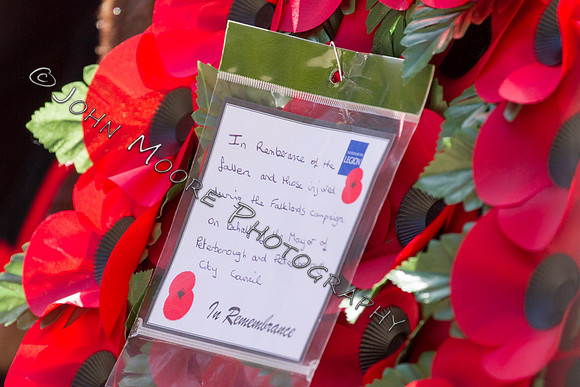 In Remberance of the
fallen and those injured
during the Falklands Campaign
on behalf Mayor of
Peterborough and
City Council
In Remembrance
LEGION
© John Moore Photography